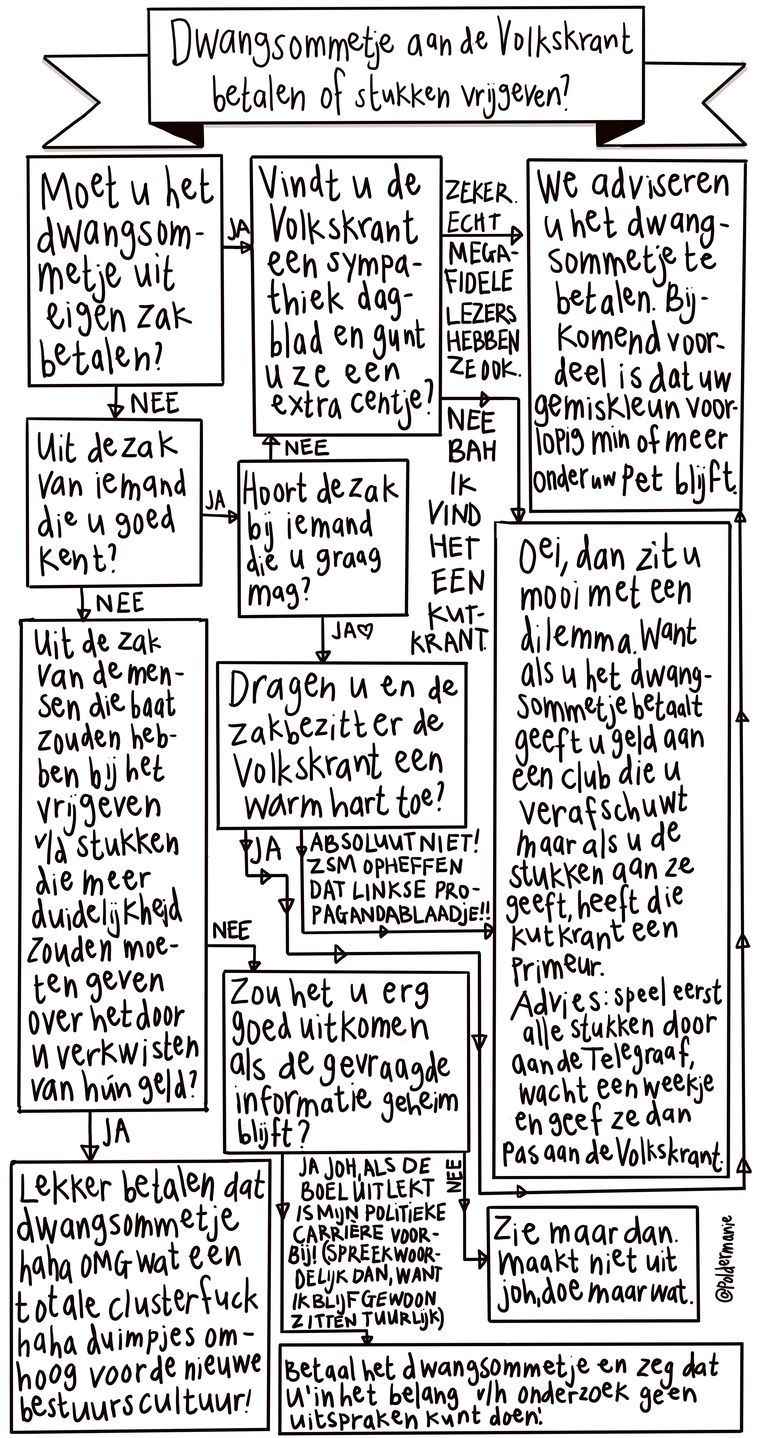 Dwangsommetje aan de Volkskrant
betalen of stukken vrijgeven?
Moet u het
dwangsom-
metje uit
eigen zak
betalen?
JA
NEE
Vindt u de
Volkskrant
een sympa-
thiek dag-
blad en gunt
u ze een
extra centje?
ZEKER.
ECHT
MEGA-
FIDELE
LEZERS
HEBBEN
ZE OOK.
We adviseren
u het dwang-
sommetje te
betalen. Bij-
komend voor-
deel is dat uw
gemiskleun voor-
lopig min of meer
onder uw pet blijft.
NEE
BAH
IK
VIND
HET
EEN
KUT-
KRANT.
Uit de zak
van iemand
die u goed
kent?
JA
NEE
Hoort de zak
bij iemand
die u graag
mag?
NEE
JA♡
Oei, dan zit u
mooi met een
dilemma. Want
als u het dwang-
sommetje betaalt
geeft u geld aan
een club die u
verafschuwt
maar als u de
stukken aan ze
geeft, heeft die
kutkrant een
primeur.
Advies: speel eerst
alle stukken door
aan de Telegraaf,
wacht een weekje
en geef ze dan
pas aan de Volkskrant.
Uit de zak
van de men-
sen die baat
zouden heb-
ben bij het
vrijgeven
v/d stukken
die meer
duidelijkheid
zouden moe-
ten geven
over het door
u verkwisten
van hún geld?
NEE
JA
Dragen u en de
zakbezitter de
Volkskrant een
warm hart toe?
JA
ABSOLUUT NIET!
ZSM OPHEFFEN
DAT LINKSE PRO-
PAGANDABLAADJE!!
Zou het u erg
goed uitkomen
als de gevraagde
informatie geheim
blijft?
JA JOH, ALS DE
BOEL UITLEKT
IS MIJN POLITIEKE
CARRIÈRE VOOR-
BIJ! (SPREEKWOOR-
DELIJK DAN, WANT
IK BLIJF GEWOON
ZITTEN TUURLIJK)
NEE
Lekker betalen dat
dwangsommetje
haha OMG wat een
totale clusterfuck
haha duimpjes om-
hoog voor de nieuwe
bestuurscultuur!
Zie maar dan.
maakt niet uit
joh, doe maar wat.
@Poldermanie
Betaal het dwangsommetje en zeg dat
u 'in het belang v/h onderzoek geen
uitspraken kunt doen.'